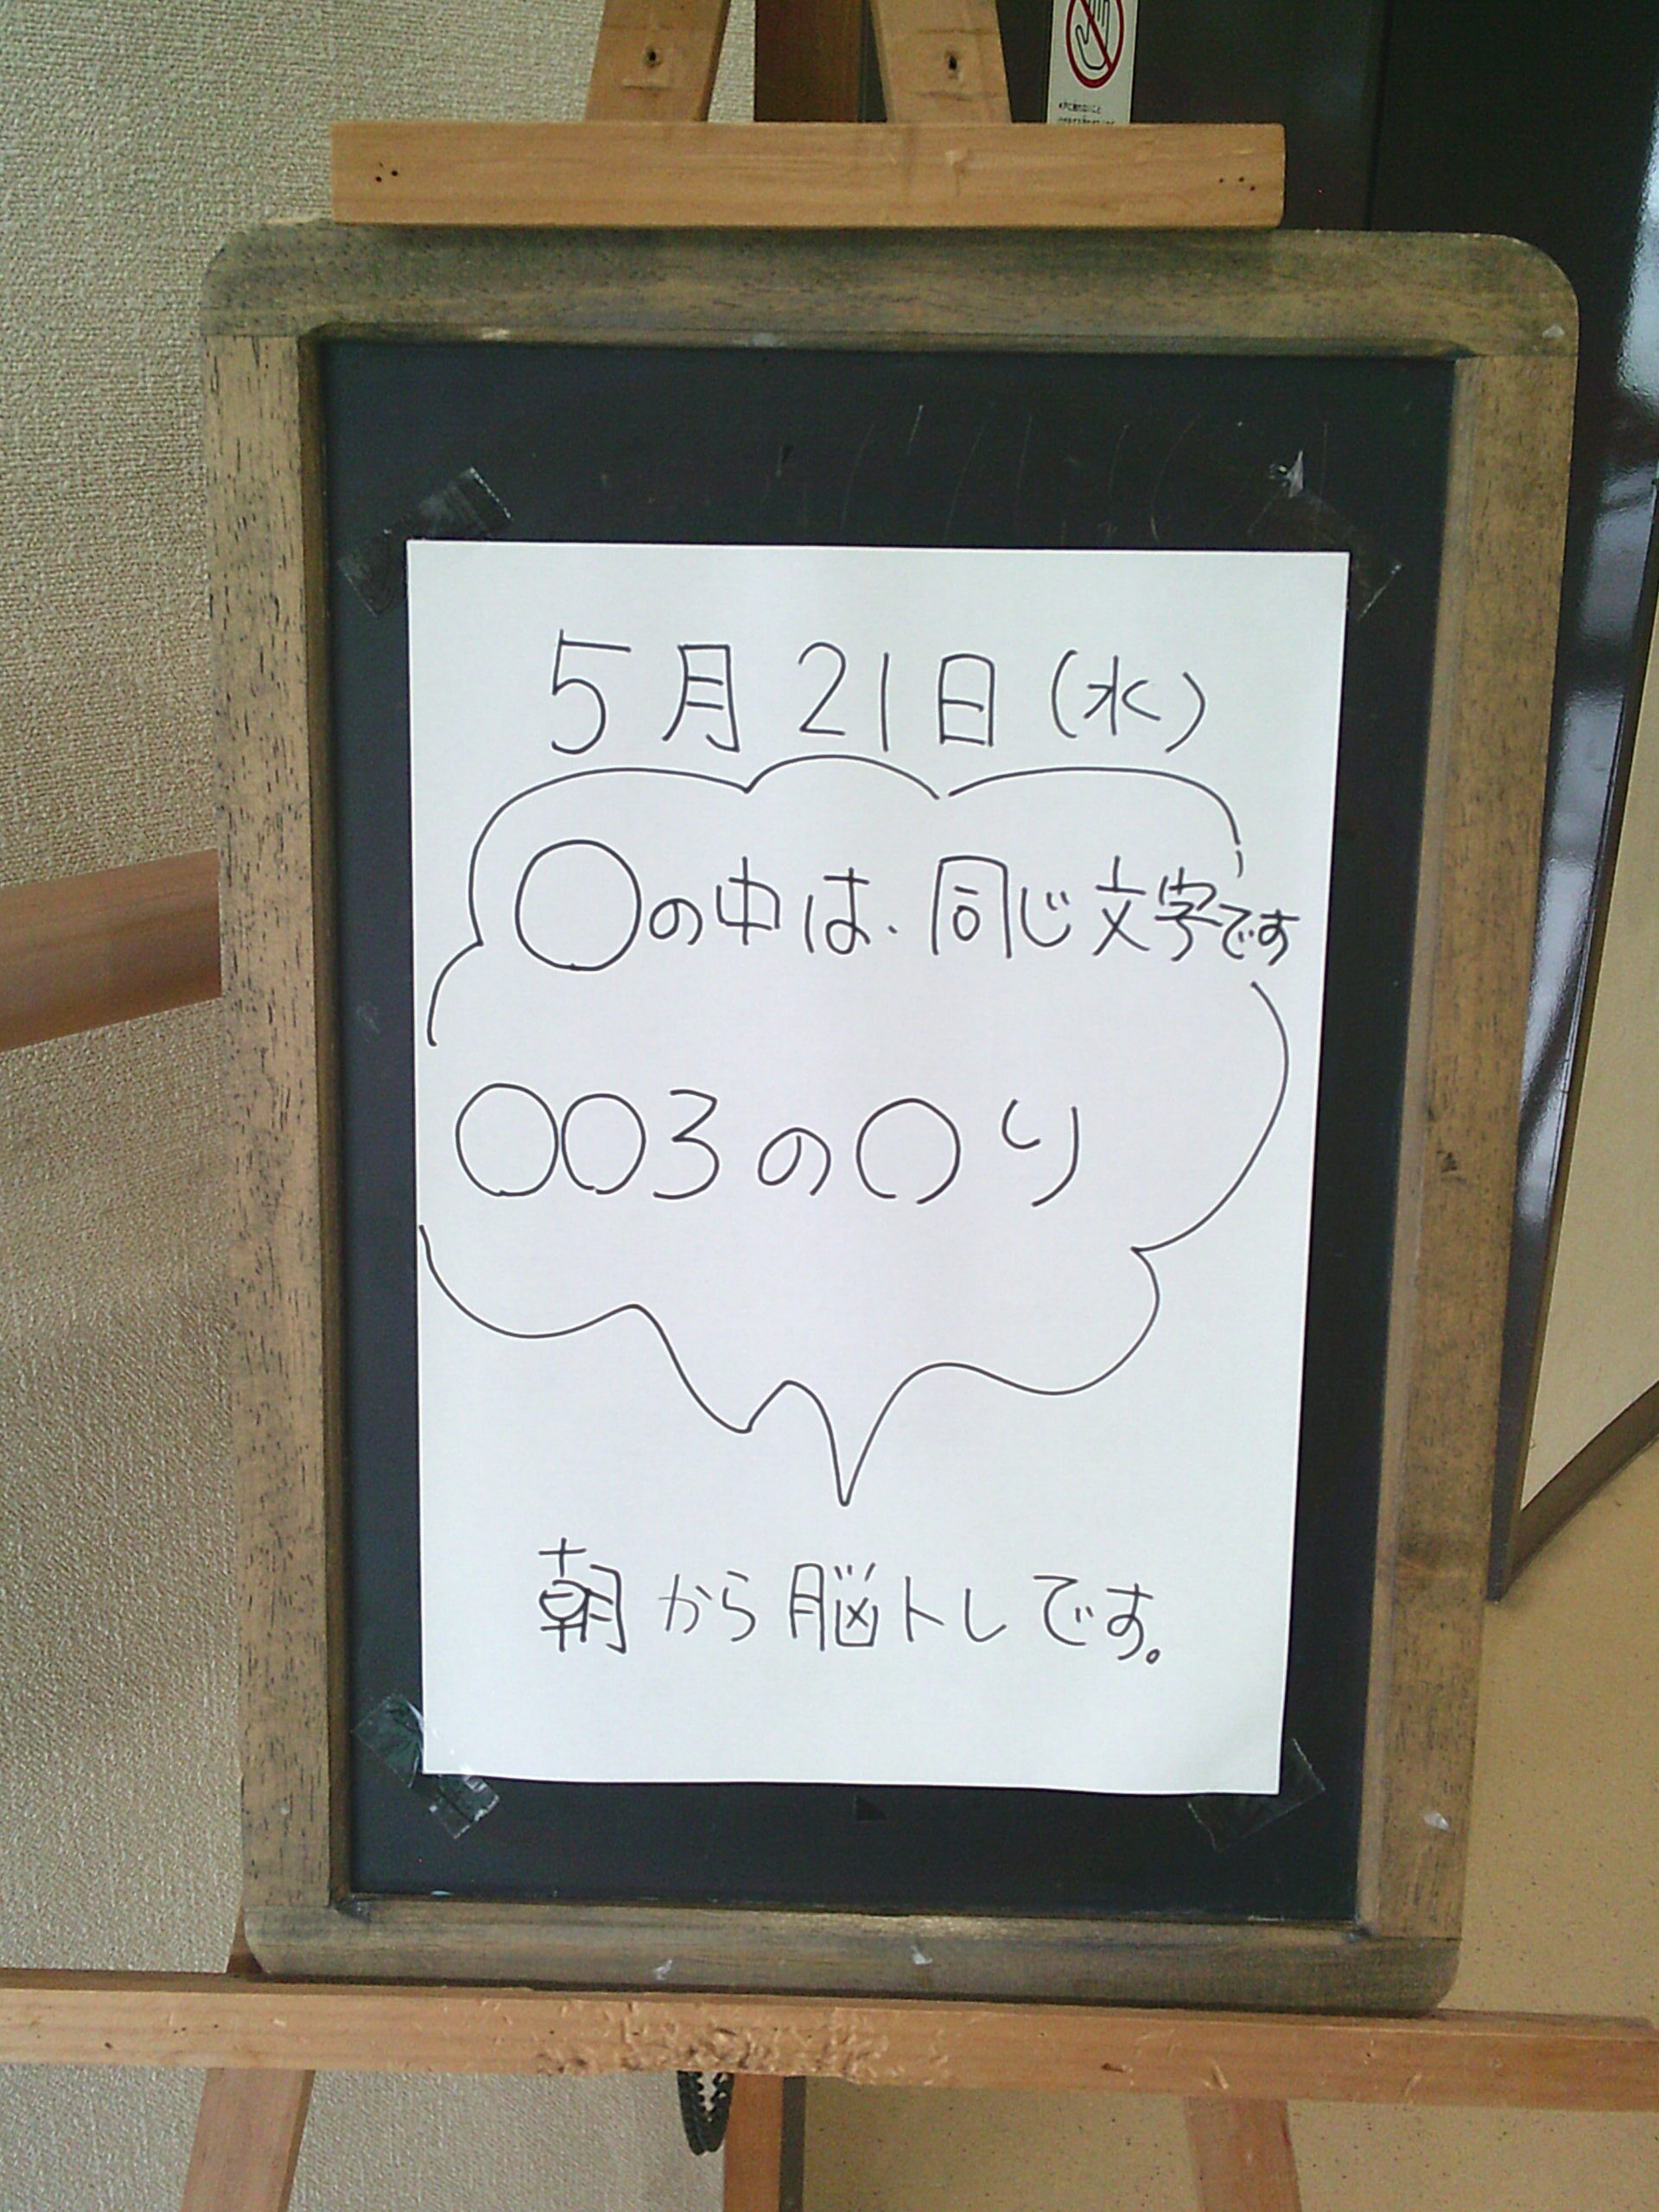 5月21日(水)
〇の中は、同じ文字です
〇〇ろの〇り
朝から脳トレです。